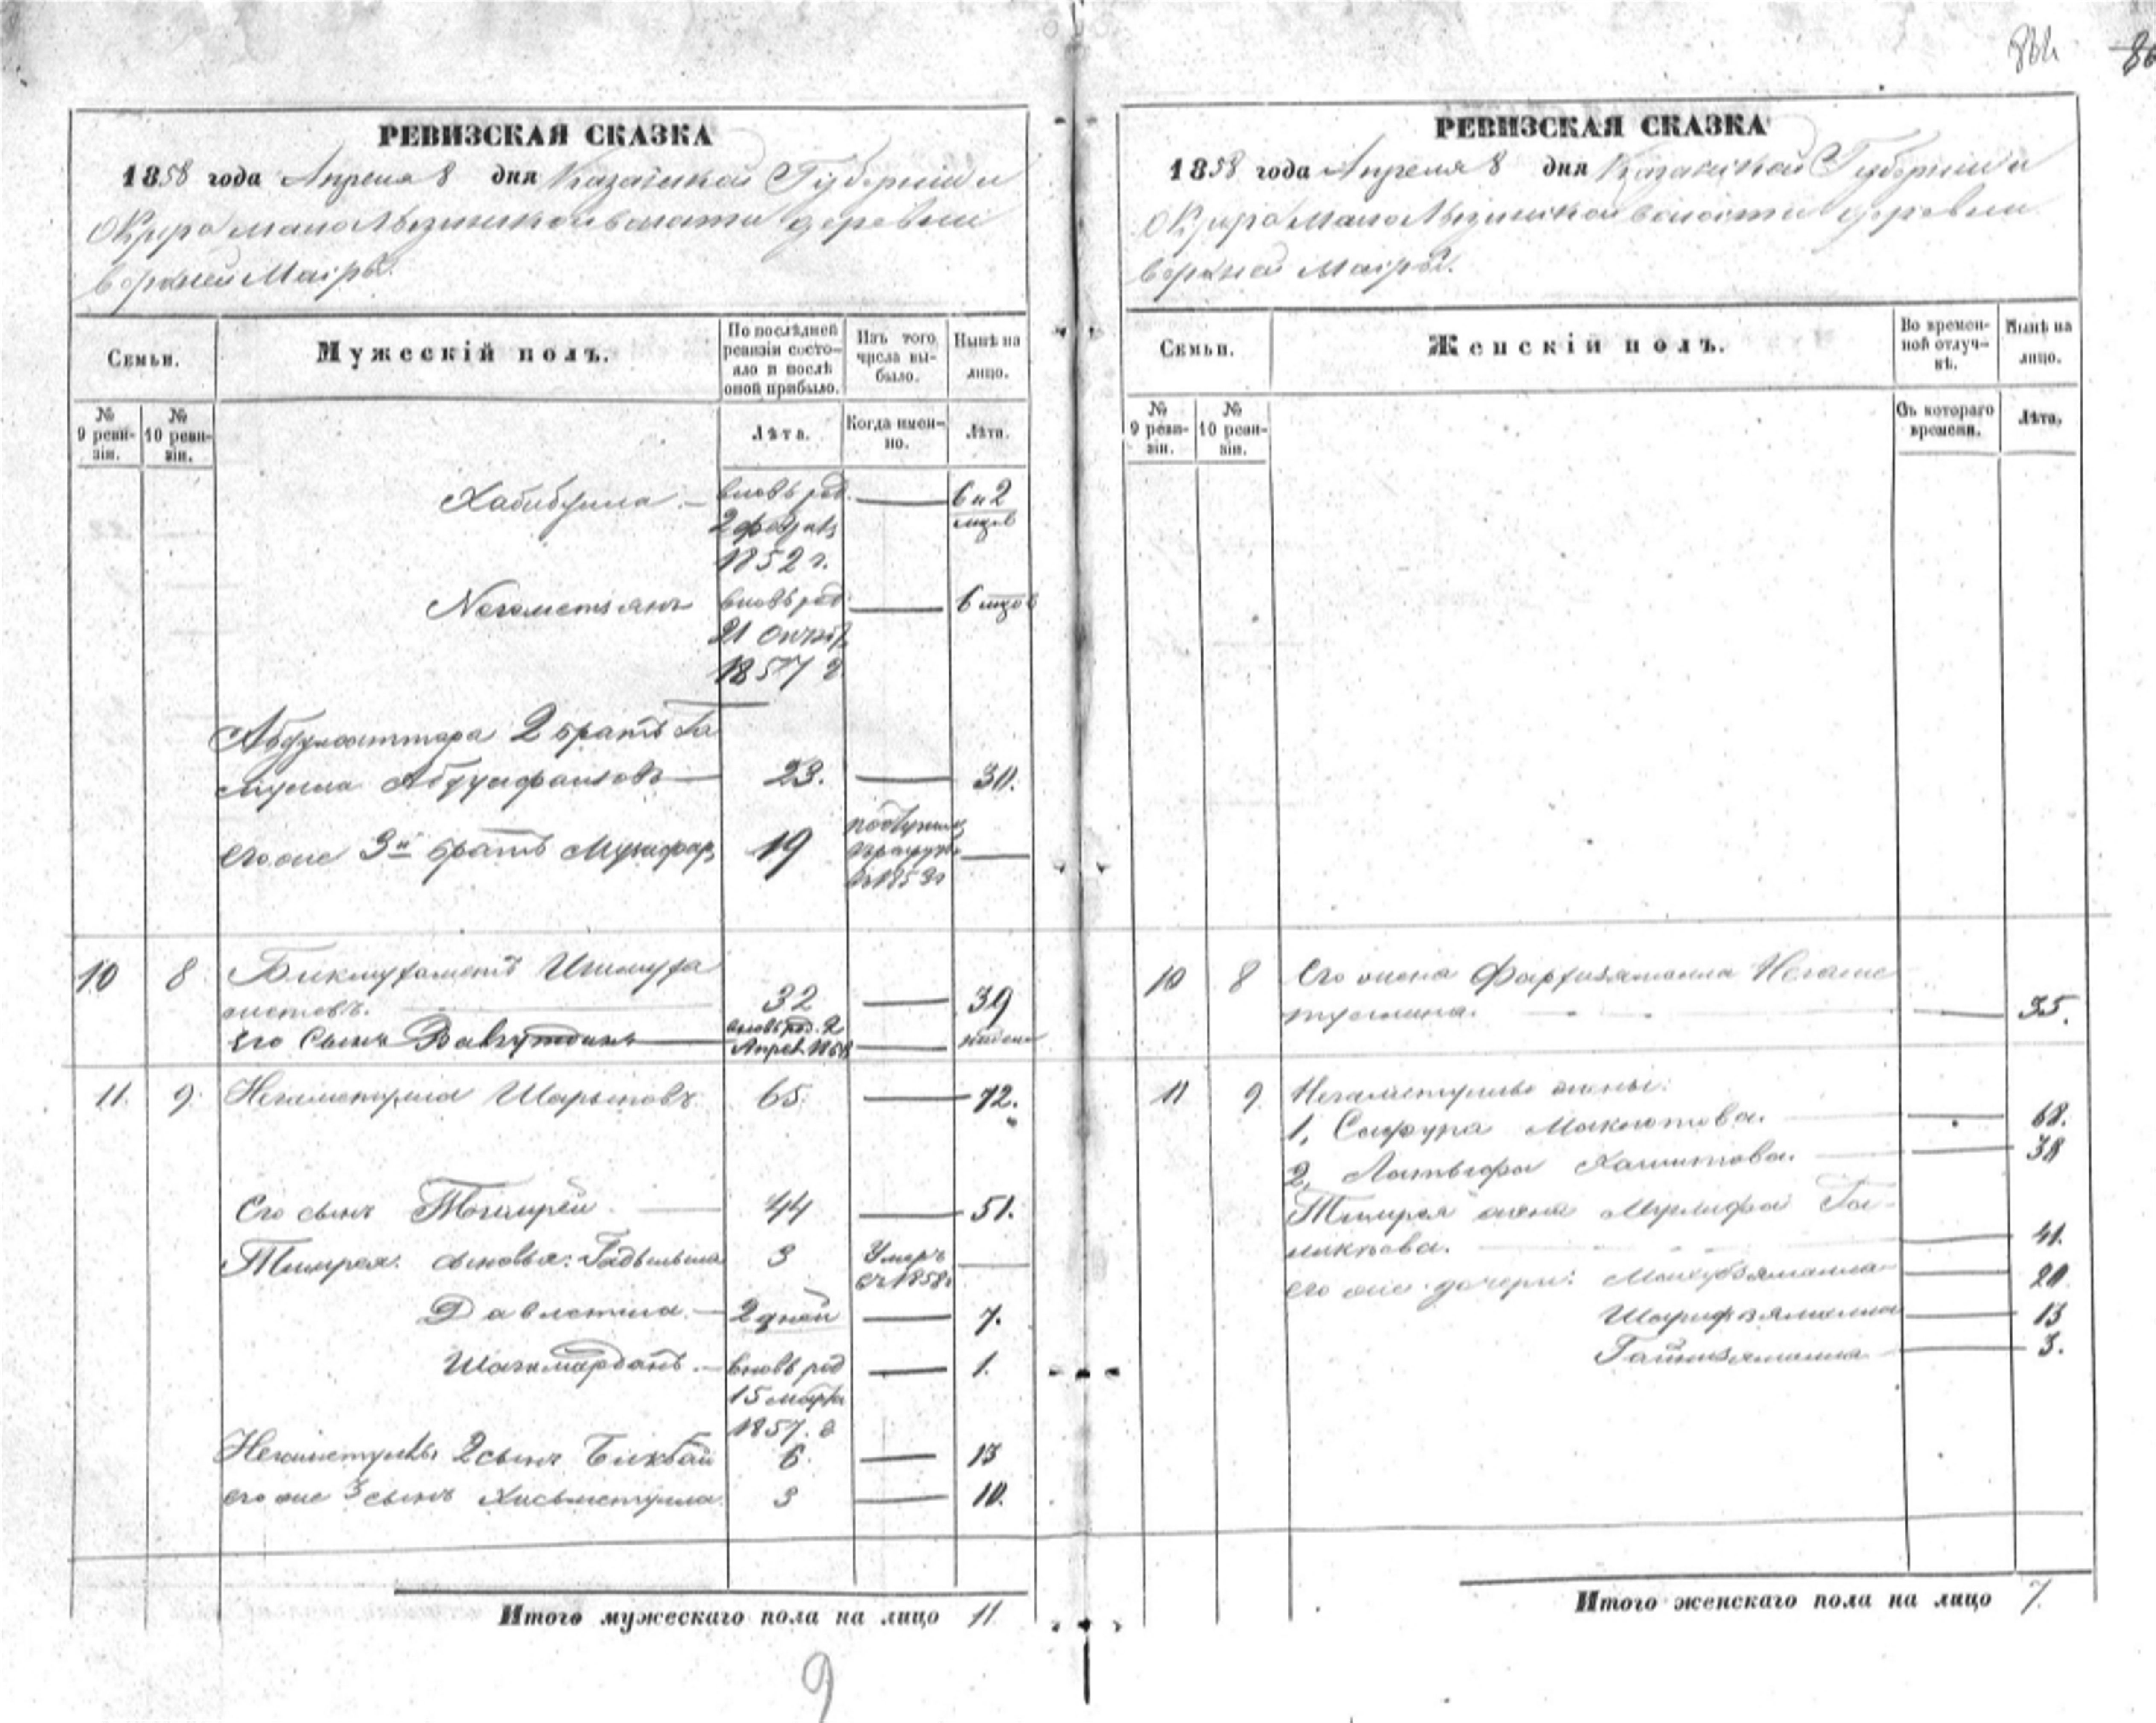 884
РЕВИЗСКАЯ СКАЗКА
1858 года Апреля 8 дня Казанской Губернии и
Округа мало Лызинской волости деревни
верхней Магры.
Семьи.
Мужескій полъ.
По послѣдней ревизіи состо-яло и послѣ оной прибыло.
Изъ того числа вы-было.
Нынѣ на лицо.
№ 9 реви-зіи.
№ 10 реви-зіи.
Лѣта.
Когда имен-но.
Лѣта.
Хабибулла — вновь род. — 6 и 2
2 февр. мцев
1852 г.
Негаметзянъ вновь род. — 6 мцов
21 октяб.
1857 г.
Абдулсаттара 2 братъ Га
лиулла — 23. — 30.
Его же 3й братъ 19 —
10 8 Бикмухаметъ Ишмуха
метовъ. 32 — 39
вновь род. 2
Его сынъ — Апрел 1858 —
11. 9. Негаметулла Шарыповъ 65. — 72.
Его сынъ Тимирей — 44 — 51.
Тимирея сыновья: 3 Умеръ —
въ 1858
Давлетша — 2 дней — 7.
Шагимарданъ. — вновь род — 1.
15 марта
1857. г
Негаметуллы 2 сынъ Бикбай 6. — 13
его же 3 сынъ Хисьметулла 3 — 10.
Итого мужескаго пола на лицо 11
9
РЕВИЗСКАЯ СКАЗКА
1858 года Апреля 8 дня Казанской Губернии и
Округа мало Лызинской волости деревни
верхней Магры.
Семьи.
Женскій полъ.
Во времен-ной отлуч-кѣ.
Нынѣ на лицо.
№ 9 реви-зіи.
№ 10 реви-зіи.
Съ котораго времени.
Лѣта.
10 8 Его жена Негаме
туллина. — 35.
11 9. Негаметуллы жены:
1, Сагура Макютова. — 68.
2, Латыфа Хамитова. — 38
Тимирея жена
— 41.
его же дочери: — 20
Шарифзямалла — 13
Гайнизямалла — 3.
Итого женскаго пола на лицо 7.